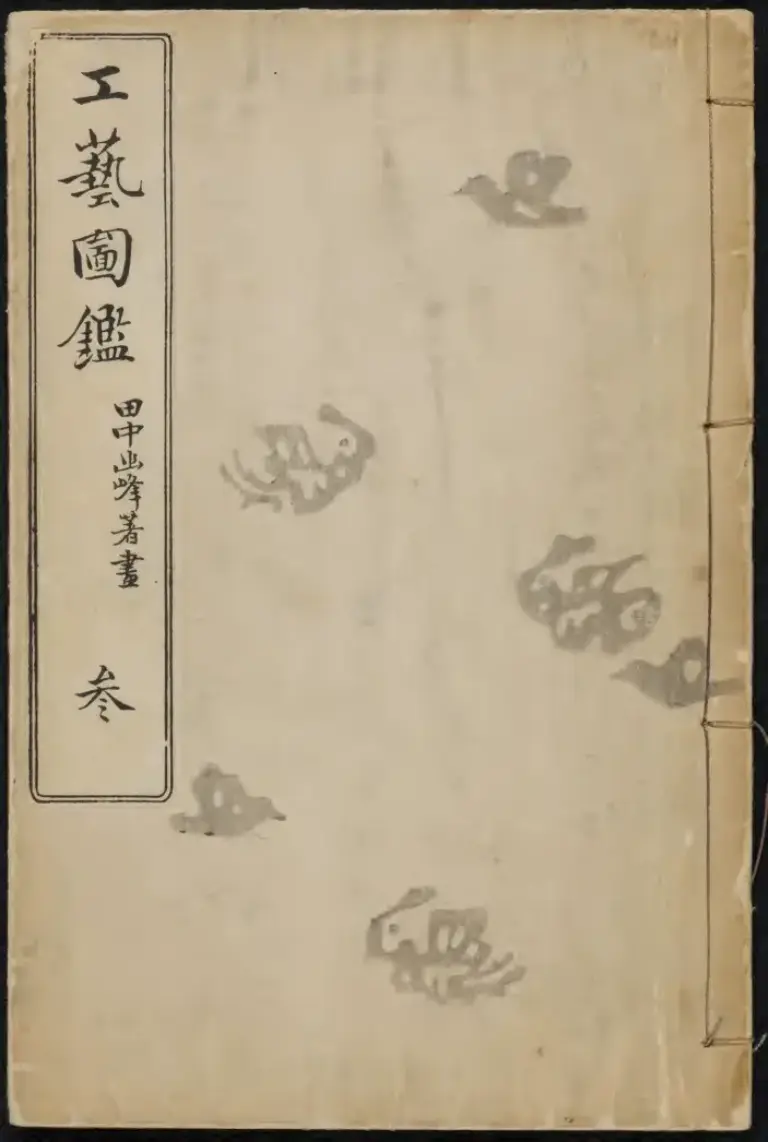 工藝圖鑑
田中幽峰著畫
参